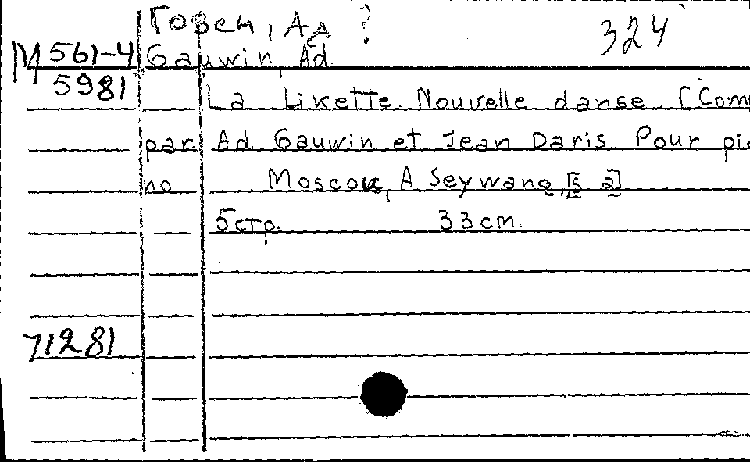 Говен, Ад ?
324
М 561-4
5981
Gauwin, Ad.
La Likette. Nouvelle danse. [Com
par Ad. Gauwin et Jean Daris. Pour pia
no. Moscou, A. Seywang, [s. a.]
5 стр. 33 см.
71281